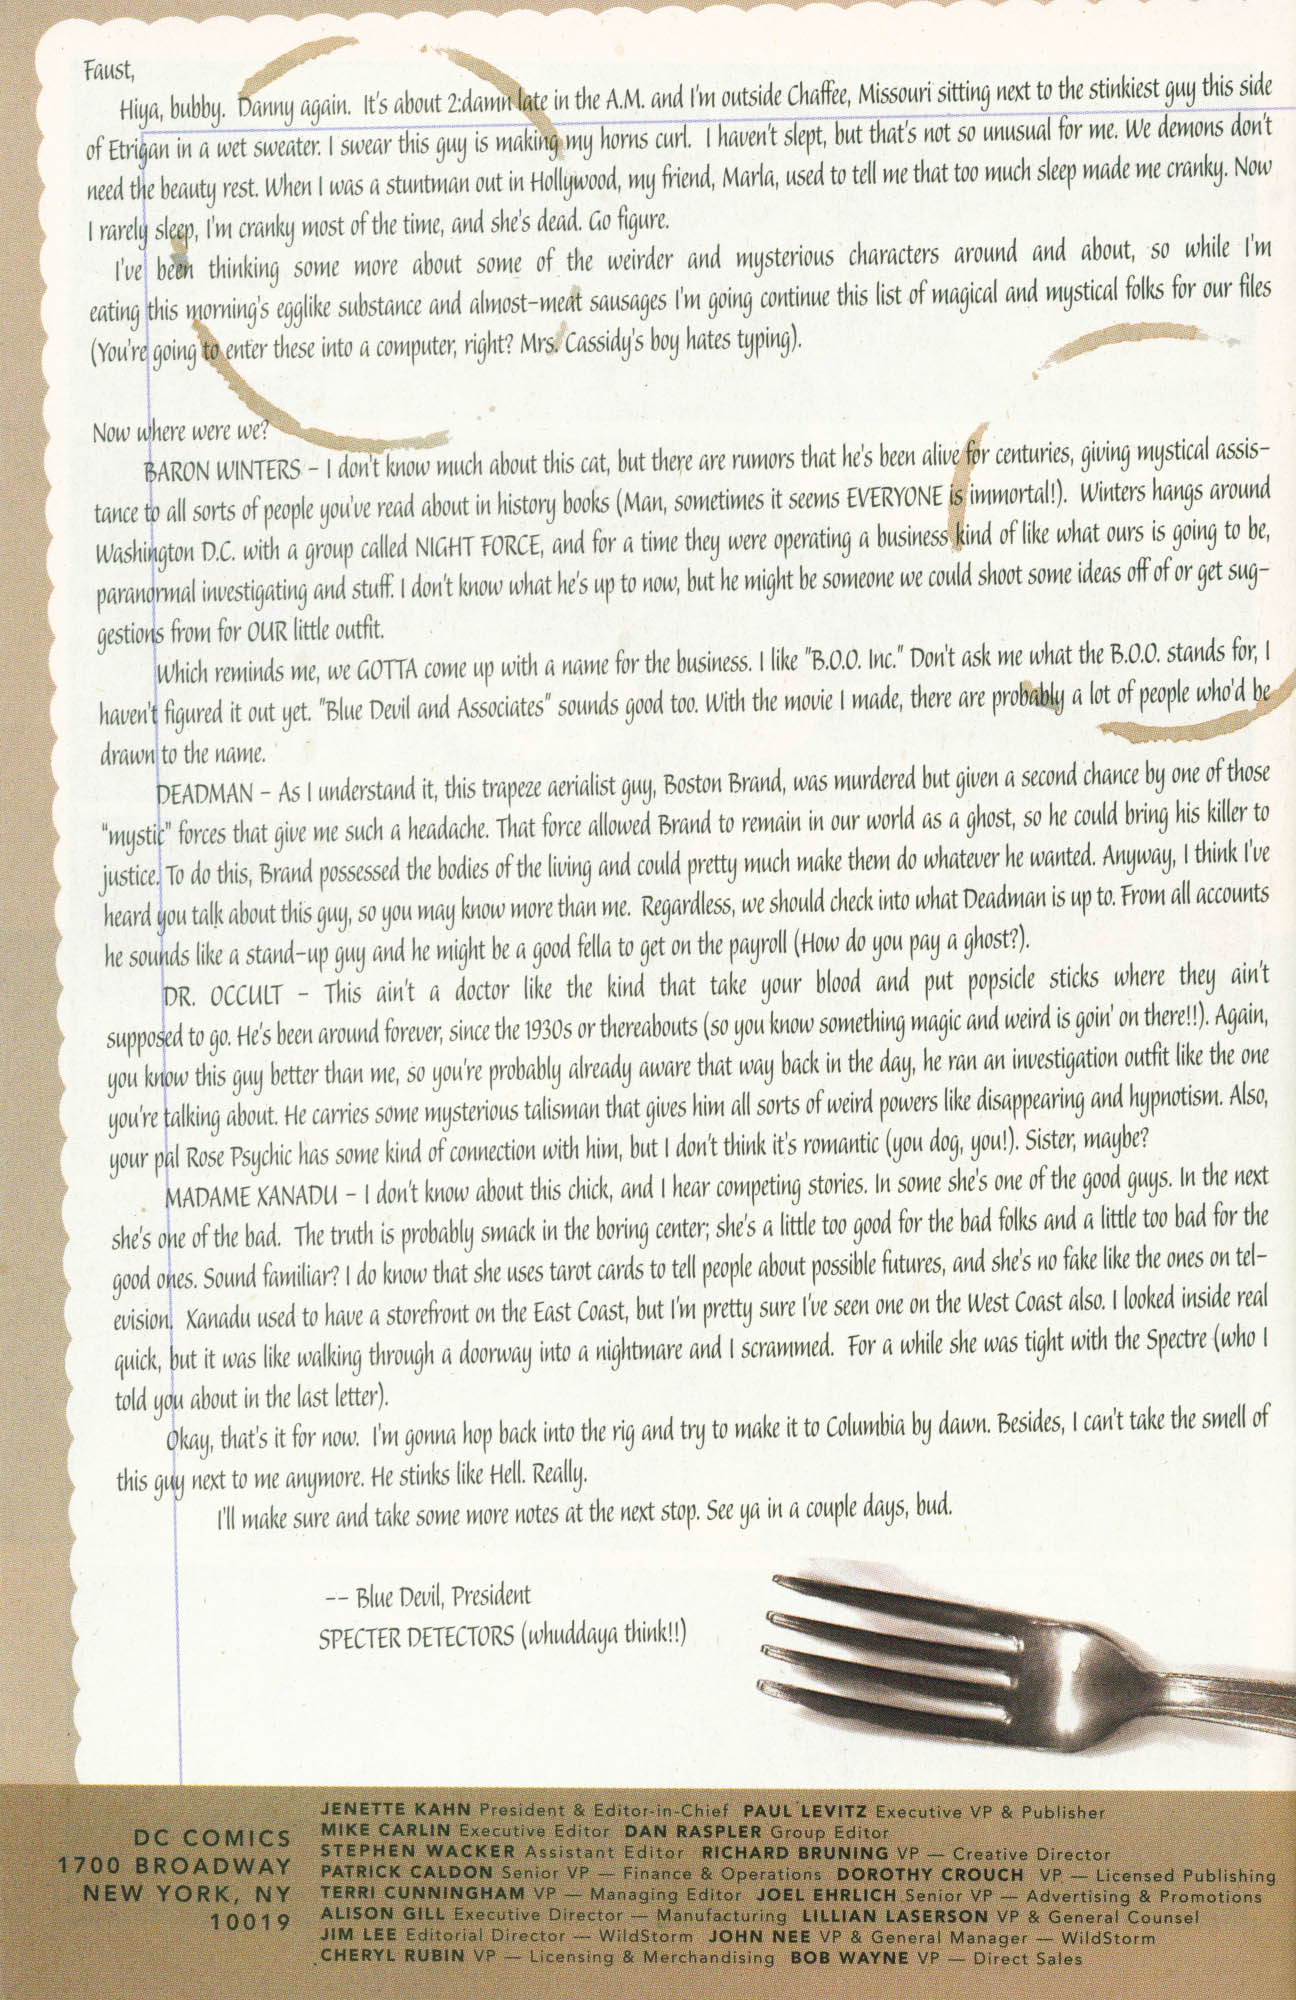 Faust,
Hiya, bubby. Danny again. It's about 2:damn late in the A.M. and I'm outside Chaffee, Missouri sitting next to the stinkiest guy this side
of Etrigan in a wet sweater. I swear this guy is making my horns curl. I haven't slept, but that's not so unusual for me. We demons don't
need the beauty rest. When I was a stuntman out in Hollywood, my friend, Marla, used to tell me that too much sleep made me cranky. Now
I rarely sleep, I'm cranky most of the time, and she's dead. Go figure.
I've been thinking some more about some of the weirder and mysterious characters around and about, so while I'm
eating this morning's egglike substance and almost-meat sausages I'm going continue this list of magical and mystical folks for our files
(You're going to enter these into a computer, right? Mrs. Cassidy's boy hates typing).
Now where were we?
BARON WINTERS - I don't know much about this cat, but there are rumors that he's been alive for centuries, giving mystical assis-
tance to all sorts of people you've read about in history books (Man, sometimes it seems EVERYONE is immortal!). Winters hangs around
Washington D.C. with a group called NIGHT FORCE, and for a time they were operating a business kind of like what ours is going to be,
paranormal investigating and stuff. I don't know what he's up to now, but he might be someone we could shoot some ideas off of or get sug-
gestions from for OUR little outfit.
Which reminds me, we GOTTA come up with a name for the business. I like "B.O.O. Inc." Don't ask me what the B.O.O. stands for, I
haven't figured it out yet. "Blue Devil and Associates" sounds good too. With the movie I made, there are probably a lot of people who'd be
drawn to the name.
DEADMAN - As I understand it, this trapeze aerialist guy, Boston Brand, was murdered but given a second chance by one of those
"mystic" forces that give me such a headache. That force allowed Brand to remain in our world as a ghost, so he could bring his killer to
justice. To do this, Brand possessed the bodies of the living and could pretty much make them do whatever he wanted. Anyway, I think I've
heard you talk about this guy, so you may know more than me. Regardless, we should check into what Deadman is up to. From all accounts
he sounds like a stand-up guy and he might be a good fella to get on the payroll (How do you pay a ghost?).
DR. OCCULT - This ain't a doctor like the kind that take your blood and put popsicle sticks where they ain't
supposed to go. He's been around forever, since the 1930s or thereabouts (so you know something magic and weird is goin' on there!!). Again,
you know this guy better than me, so you're probably already aware that way back in the day, he ran an investigation outfit like the one
you're talking about. He carries some mysterious talisman that gives him all sorts of weird powers like disappearing and hypnotism. Also,
your pal Rose Psychic has some kind of connection with him, but I don't think it's romantic (you dog, you!). Sister, maybe?
MADAME XANADU - I don't know about this chick, and I hear competing stories. In some she's one of the good guys. In the next
she's one of the bad. The truth is probably smack in the boring center; she's a little too good for the bad folks and a little too bad for the
good ones. Sound familiar? I do know that she uses tarot cards to tell people about possible futures, and she's no fake like the ones on tel-
evision. Xanadu used to have a storefront on the East Coast, but I'm pretty sure I've seen one on the West Coast also. I looked inside real
quick, but it was like walking through a doorway into a nightmare and I scrammed. For a while she was tight with the Spectre (who I
told you about in the last letter).
Okay, that's it for now. I'm gonna hop back into the rig and try to make it to Columbia by dawn. Besides, I can't take the smell of
this guy next to me anymore. He stinks like Hell. Really.
I'll make sure and take some more notes at the next stop. See ya in a couple days, bud.
-- Blue Devil, President
SPECTER DETECTORS (whuddaya think!!)
DC COMICS
1700 BROADWAY
NEW YORK, NY
10019
JENETTE KAHN President & Editor-in-Chief PAUL LEVITZ Executive VP & Publisher
MIKE CARLIN Executive Editor DAN RASPLER Group Editor
STEPHEN WACKER Assistant Editor RICHARD BRUNING VP — Creative Director
PATRICK CALDON Senior VP — Finance & Operations DOROTHY CROUCH VP — Licensed Publishing
TERRI CUNNINGHAM VP — Managing Editor JOEL EHRLICH Senior VP — Advertising & Promotions
ALISON GILL Executive Director — Manufacturing LILLIAN LASERSON VP & General Counsel
JIM LEE Editorial Director — WildStorm JOHN NEE VP & General Manager — WildStorm
CHERYL RUBIN VP — Licensing & Merchandising BOB WAYNE VP — Direct Sales